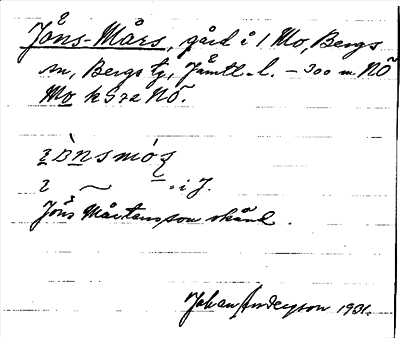 Jöns-Mårs, gård i 1 Mo, Bergs
sn, Bergs tg, Jämtl. l. – 300 m NÖ
Mo k:a NÖ.
i J.
Jöns Mårtensson skänl.
Johan Anderson 1931.